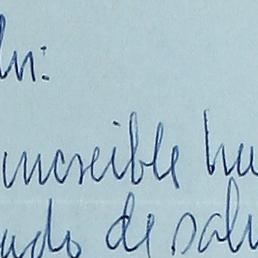 ln:
increible hu
ado de salu